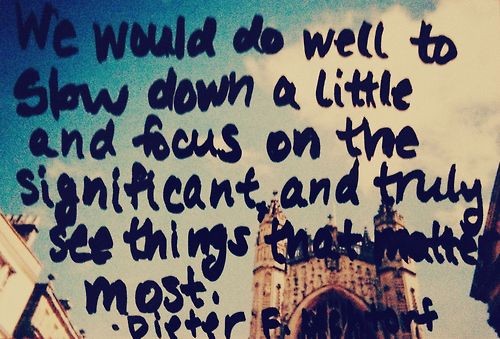 We would do well to
slow down a little
and focus on the
significant, and truly
see things that matter
most.
- Dieter F.